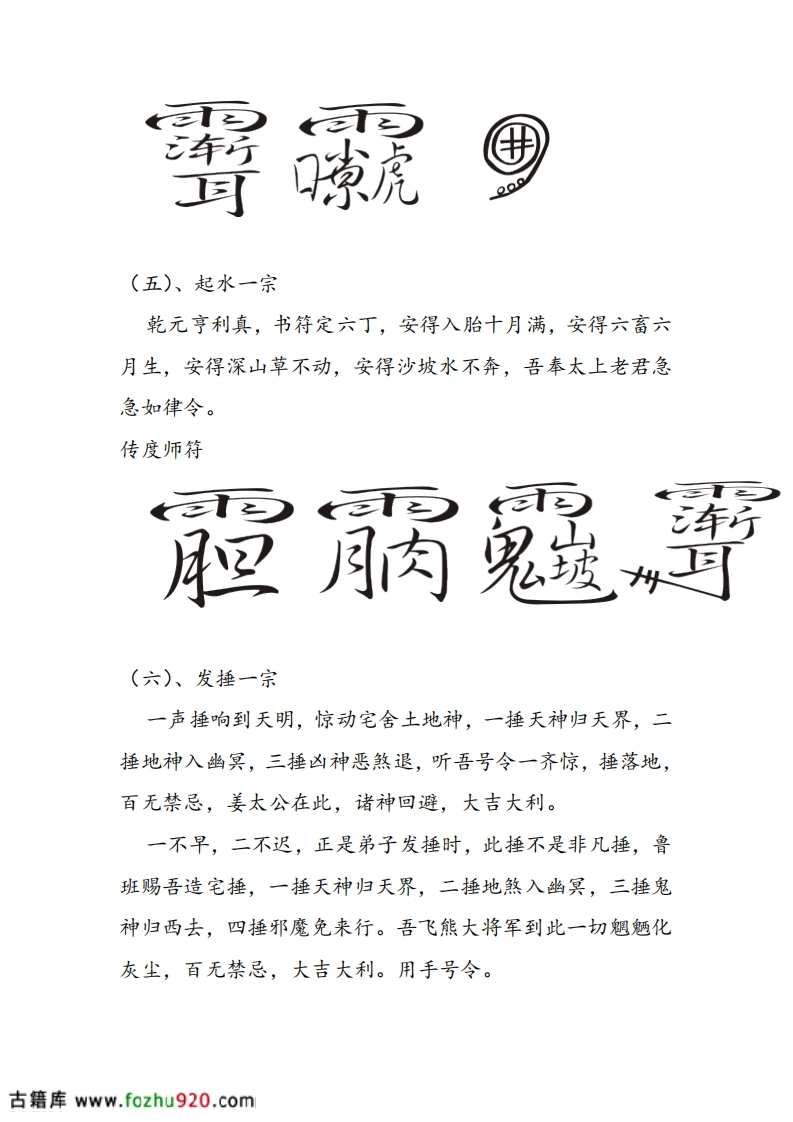 （五）、起水一宗
乾元亨利真，书符定六丁，安得入胎十月满，安得六畜六
月生，安得深山草不动，安得沙坡水不奔，吾奉太上老君急
急如律令。
传度师符
（六）、发捶一宗
一声捶响到天明，惊动宅舍土地神，一捶天神归天界，二
捶地神入幽冥，三捶凶神恶煞退，听吾号令一齐惊，捶落地，
百无禁忌，姜太公在此，诸神回避，大吉大利。
一不早，二不迟，正是弟子发捶时，此捶不是非凡捶，鲁
班赐吾造宅捶，一捶天神归天界，二捶地煞入幽冥，三捶鬼
神归西去，四捶邪魔免来行。吾飞熊大将军到此一切魍魉化
灰尘，百无禁忌，大吉大利。用手号令。
古籍库 www.fozhu920.com